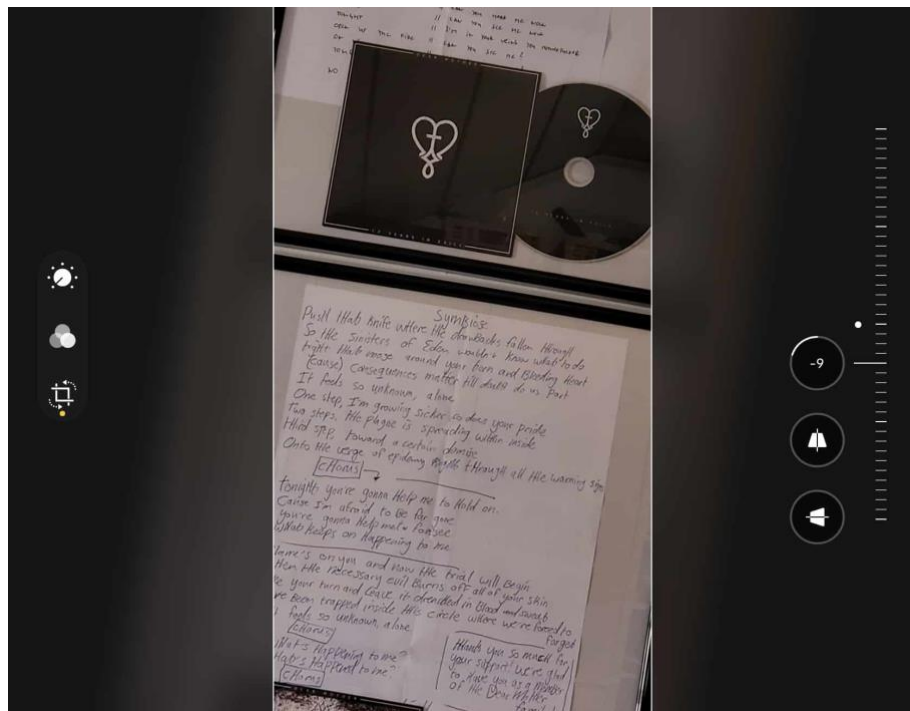 tonight // can you hear me now
// can you see me now
// I'm in your
// can you see me?
DEAR MOTHER
12 YEARS IN EXILE
12 YEARS IN EXILE
-9
Symbiose
Push that knife where the drawbacks fallen through
So the sinisters of Eden wouldn't know what to do
tight that noose around your torn and Bleeding Heart
(cause) consequences matter till death do us part
It feels so unknown, alone
One step, I'm growing sicker so does your pride
two steps, the plague is spreading within inside
third step, toward a certain demise
Onto the verge of epidemy Right through all the warning sign
CHorus
tonight, you're gonna Help me to Hold on
Cause I'm afraid to be far gone
you're gonna Help me to foresee
What keeps on Happening to me
lame's on you and now the trial will Begin
then the necessary evil Burns off all of your skin
your turn and leave it drenched in Blood and sweat
been trapped inside this circle where we're forced to
forget
feels so unknown, alone
CHorus
What's Happening to me?
What's Happened to me?
CHorus
thank you so much for
your support! we're glad
to have you as a member
of the Dear Mother
family!
DEAR MOTHER